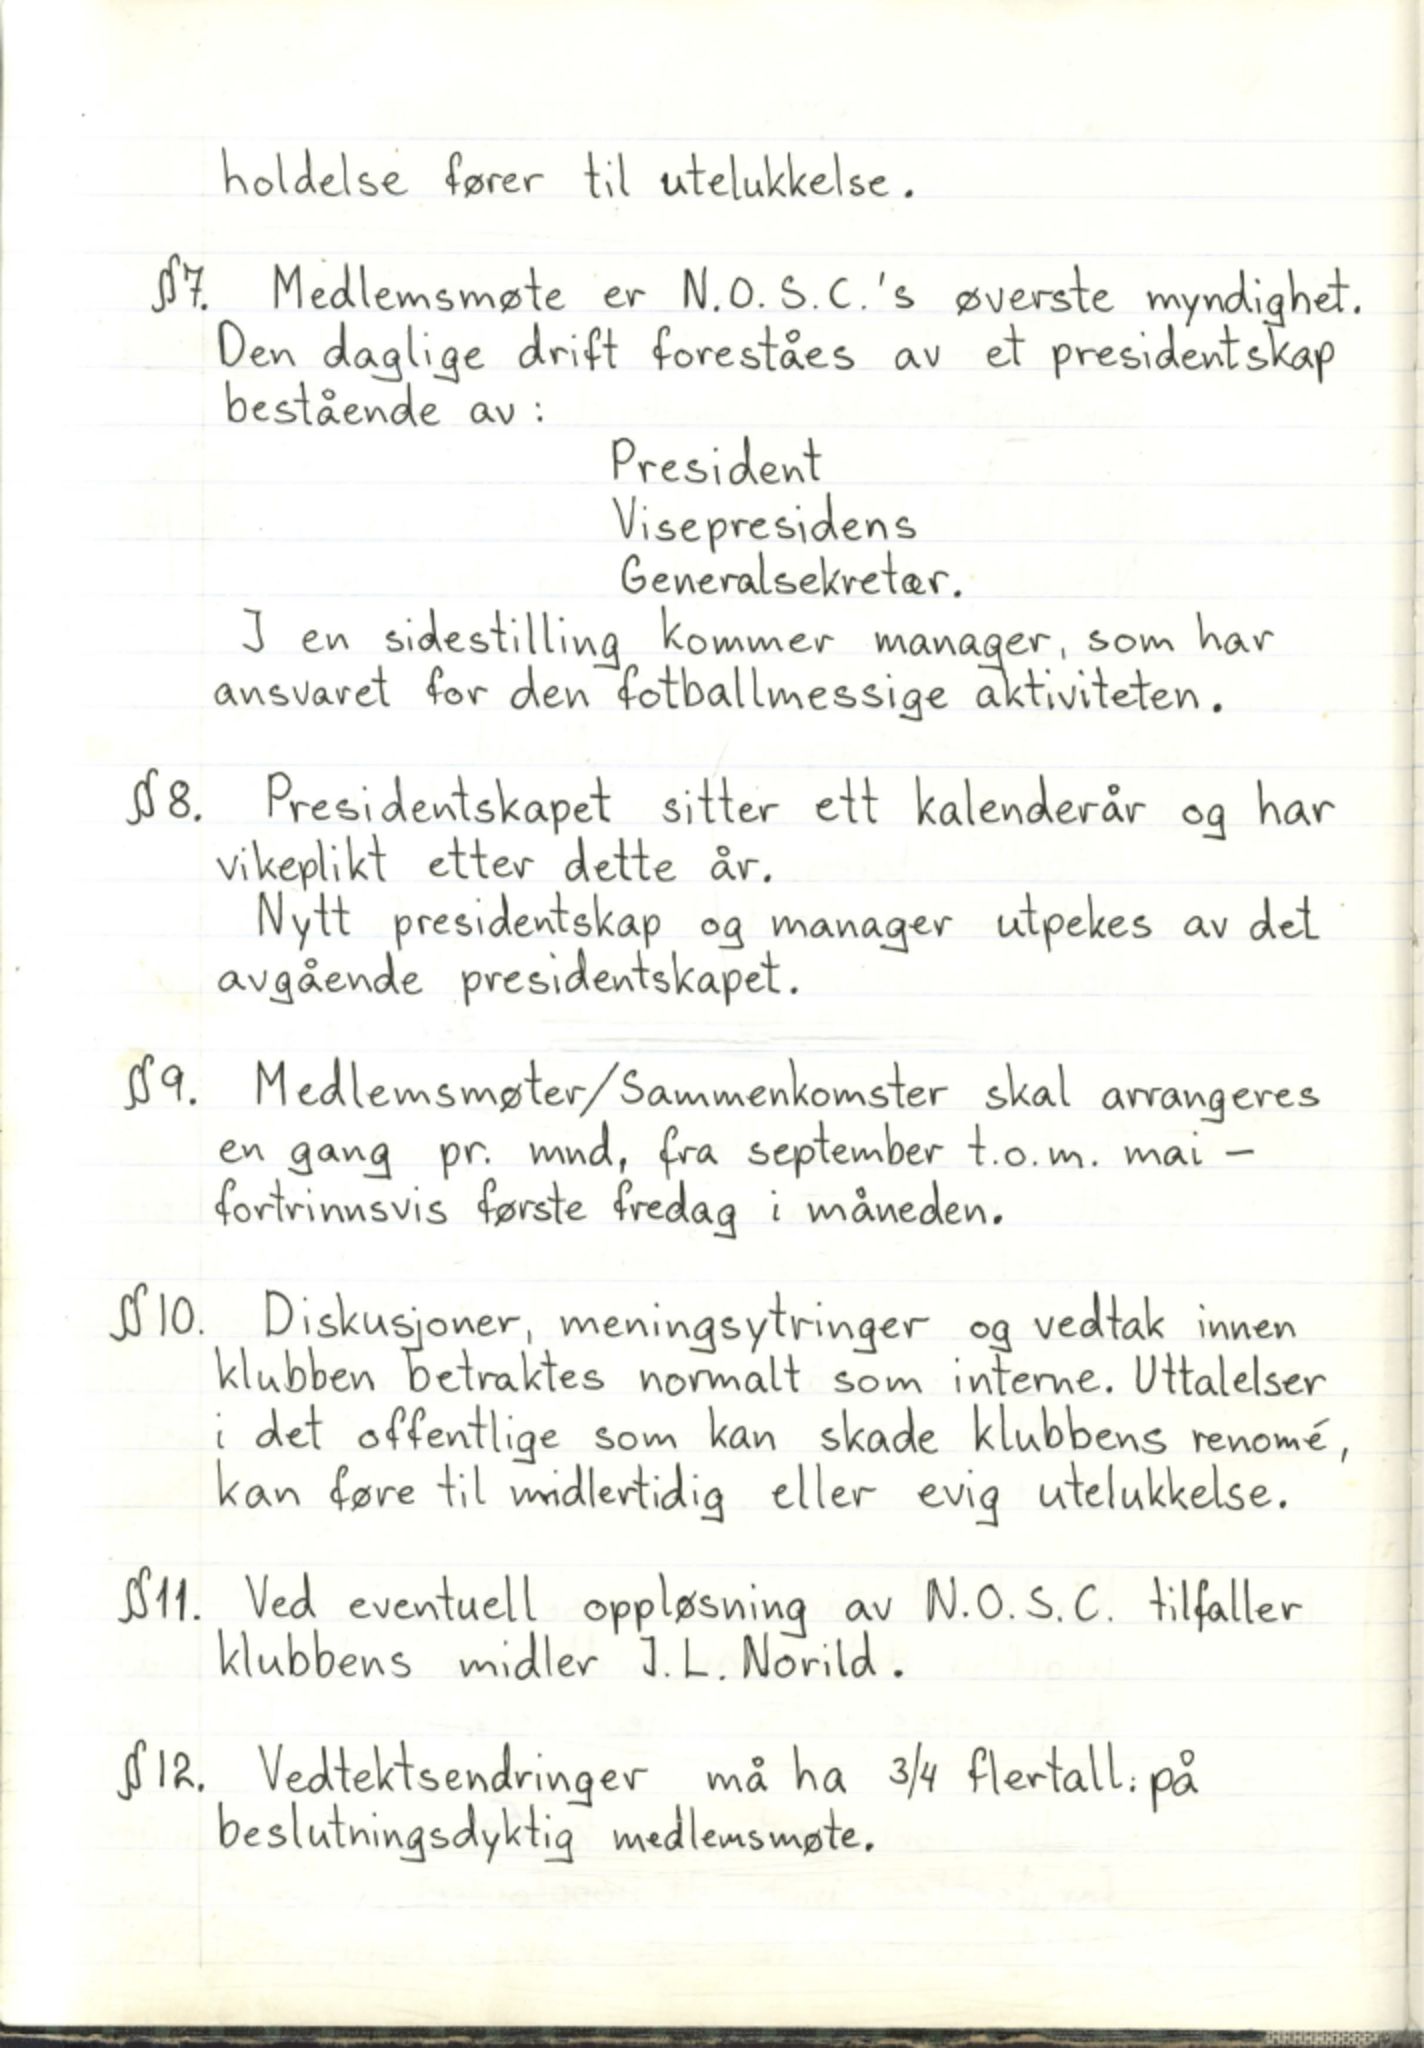 holdelse fører til utelukkelse.
§7. Medlemsmøte er N.O.S.C.'s øverste myndighet.
Den daglige drift foreståes av et presidentskap
bestående av:
President
Visepresidens
Generalsekretær.
I en sidestilling kommer manager, som har
ansvaret for den fotballmessige aktiviteten.
§8. Presidentskapet sitter ett kalenderår og har
vikeplikt etter dette år.
Nytt presidentskap og manager utpekes av det
avgående presidentskapet.
§9. Medlemsmøter/Sammenkomster skal arrangeres
en gang pr. mnd, fra september t.o.m. mai –
fortrinnsvis første fredag i måneden.
§10. Diskusjoner, meningsytringer og vedtak innen
klubben betraktes normalt som interne. Uttalelser
i det offentlige som kan skade klubbens renomé,
kan føre til midlertidig eller evig utelukkelse.
§11. Ved eventuell oppløsning av N.O.S.C. tilfaller
klubbens midler I.L. Norild.
§12. Vedtektsendringer må ha 3/4 flertall. på
beslutningsdyktig medlemsmøte.